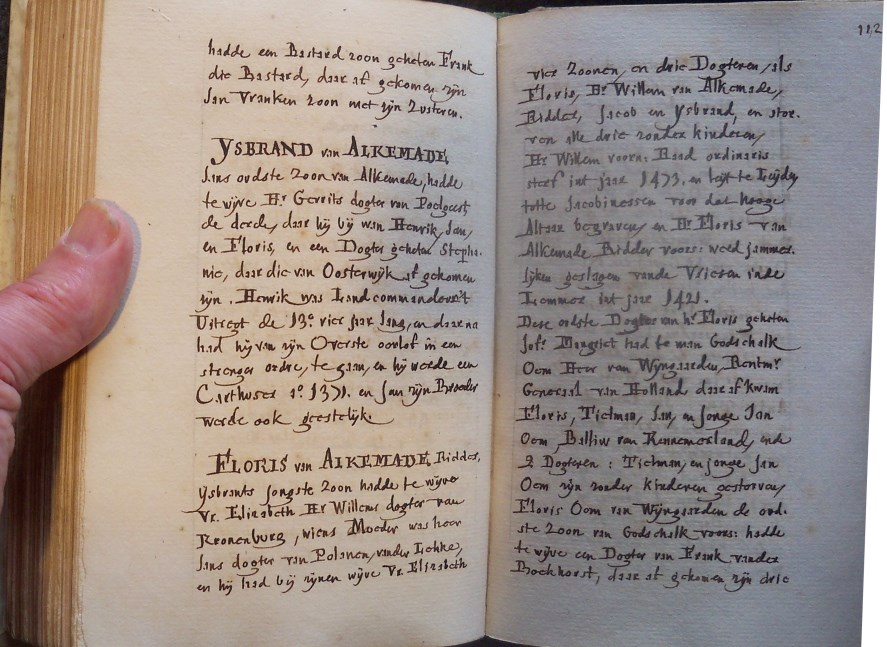 hadde een Bastard zoon geheten Frank
die Bastard, daar af gekomen zijn
Jan Vranken zoon met zijn Zusteren.
YSBRAND van ALKEMADE,
Jans oudste Zoon van Alkemade, hadde
te wijve Hr Gerrits dogter van Poelgeest
de derde, daar hij bij wan Henrik, Jan,
en Floris, en een Dogter geheten Stepha-
nie, daar die van Oosterwijk af gekomen
zijn. Henrik was Landcommandeur
Uitregt de 13e vier jaar lang, en daarna
had hij van zijn Overste oorlof in een
strenger ordre, te gaan, en hij werde een
Carthuser ao 1371. en Jan zijn Broeder
werde ook geestelijk.
FLORIS van ALKEMADE, Ridder,
ysbrants jongste Zoon hadde te wijve
Vr. Elizabeth Hr Willems dogter van
Kronenburg, wiens Moeder was heer
Jans dogter van Polanen, vander Lekke,
en hij had bij zijnen wijve Vr Elizabeth
112
vier Zoonen, en drie Dogteren, als
Floris, Hr Willem van Alkemade,
Ridder, Jacob en Ysbrand, en stor-
ven alle drie zonder kinderen,
Hr Willem voorn: Raad ordinaris
sterf int jaar 1473. en leijt te Leijden
totte Jacobinessen voor dat hooge
Altaar begraven, en Hr Floris van
Alkemade Ridder voors: werd jammer-
lijken geslagen vande Vriesen inde
Lemmer int jare 1421.
Dese oudste Dogter van hr Floris geheten
Jofr Mangriet had te man Godschalk
Oem Heer van Wijngaarden, Rentmr
Generaal van Holland daar af kwam
Floris, Tielman, Jan, en jonge Jan
Oem, Balliw van Kennemerland, ende
2 Dogteren: Tielman, en jonge Jan
Oem zijn zonder kinderen gestorven,
Floris Oem van Wijngaarden de oud-
ste Zoon van Godschalk voors: hadde
te wijve een Dogter van Frank vander
Boekhorst, daar af gekomen zijn drie